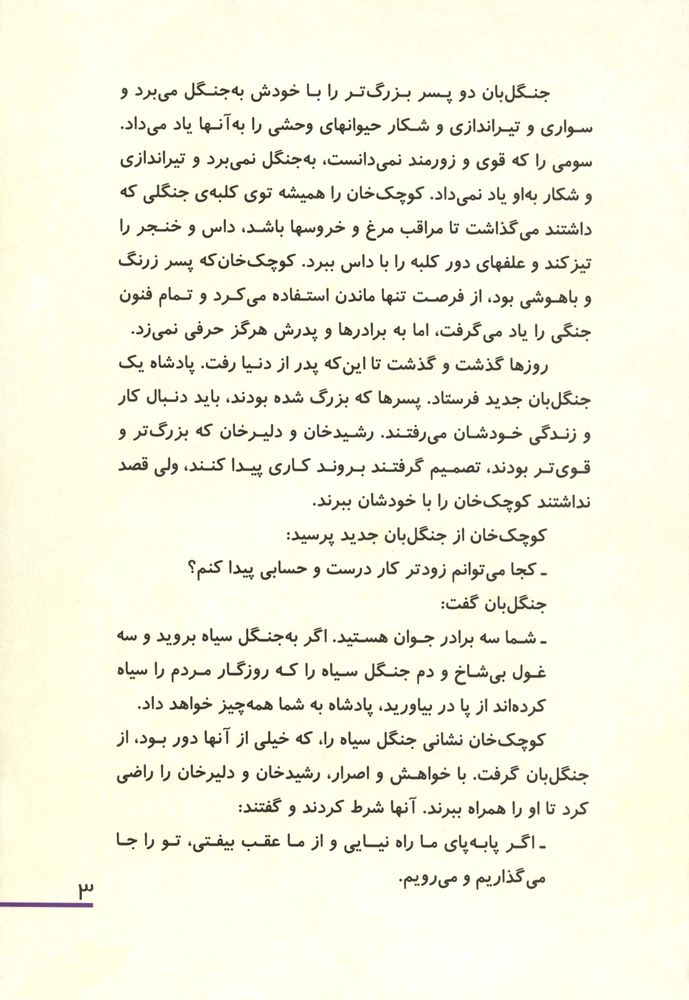 جنگل‌بان دو پسر بزرگ‌تر را با خودش به‌جنگل می‌برد و
سواری و تیراندازی و شکار حیوانهای وحشی را به‌آنها یاد می‌داد.
سومی را که قوی و زورمند نمی‌دانست، به‌جنگل نمی‌برد و تیراندازی
و شکار به‌او یاد نمی‌داد. کوچک‌خان را همیشه توی کلبه‌ی جنگلی که
داشتند می‌گذاشت تا مراقب مرغ و خروسها باشد، داس و خنجر را
تیز کند و علفهای دور کلبه را با داس ببرد. کوچک‌خان‌که پسر زرنگ
و باهوشی بود، از فرصت تنها ماندن استفاده می‌کرد و تمام فنون
جنگی را یاد می‌گرفت، اما به برادرها و پدرش هرگز حرفی نمی‌زد.
روزها گذشت و گذشت تا این‌که پدر از دنیا رفت. پادشاه یک
جنگل‌بان جدید فرستاد. پسرها که بزرگ شده بودند، باید دنبال کار
و زندگی خودشان می‌رفتند. رشیدخان و دلیرخان که بزرگ‌تر و
قوی‌تر بودند، تصمیم گرفتند بروند کاری پیدا کنند، ولی قصد
نداشتند کوچک‌خان را با خودشان ببرند.
کوچک‌خان از جنگل‌بان جدید پرسید:
ـ کجا می‌توانم زودتر کار درست و حسابی پیدا کنم؟
جنگل‌بان گفت:
ـ شما سه برادر جوان هستید. اگر به‌جنگل سیاه بروید و سه
غول بی‌شاخ و دم جنگل سیاه را که روزگار مردم را سیاه
کرده‌اند از پا در بیاورید، پادشاه به شما همه‌چیز خواهد داد.
کوچک‌خان نشانی جنگل سیاه را، که خیلی از آنها دور بود، از
جنگل‌بان گرفت. با خواهش و اصرار، رشیدخان و دلیرخان را راضی
کرد تا او را همراه ببرند. آنها شرط کردند و گفتند:
ـ اگر پابه‌پای ما راه نیایی و از ما عقب بیفتی، تو را جا
می‌گذاریم و می‌رویم.
۳